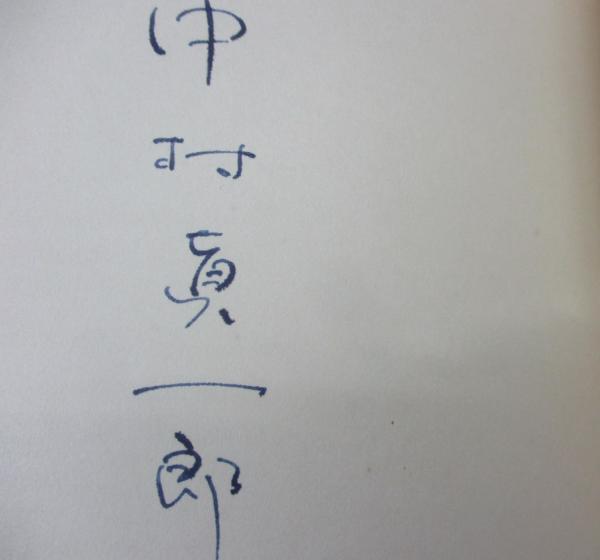 中村真一郎